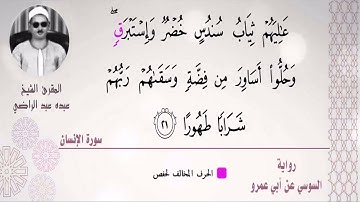 عَلَيْهُمْ ثِيَابُ سُندُسٍ خُضْرٌ وَإِسْتَبْرَقٍۖ
وَحُلُّوٓاْ أَسَاوِرَ مِن فِضَّةٍ وَسَقَىٰهُمْ رَبُّهُمْ
شَرَابًا طَهُورًا ٢١
القارئ الشيخ
عبده عبد الراضي
سورة الإنسان
رواية
السوسي عن أبي عمرو
الحرف المخالف لحفص